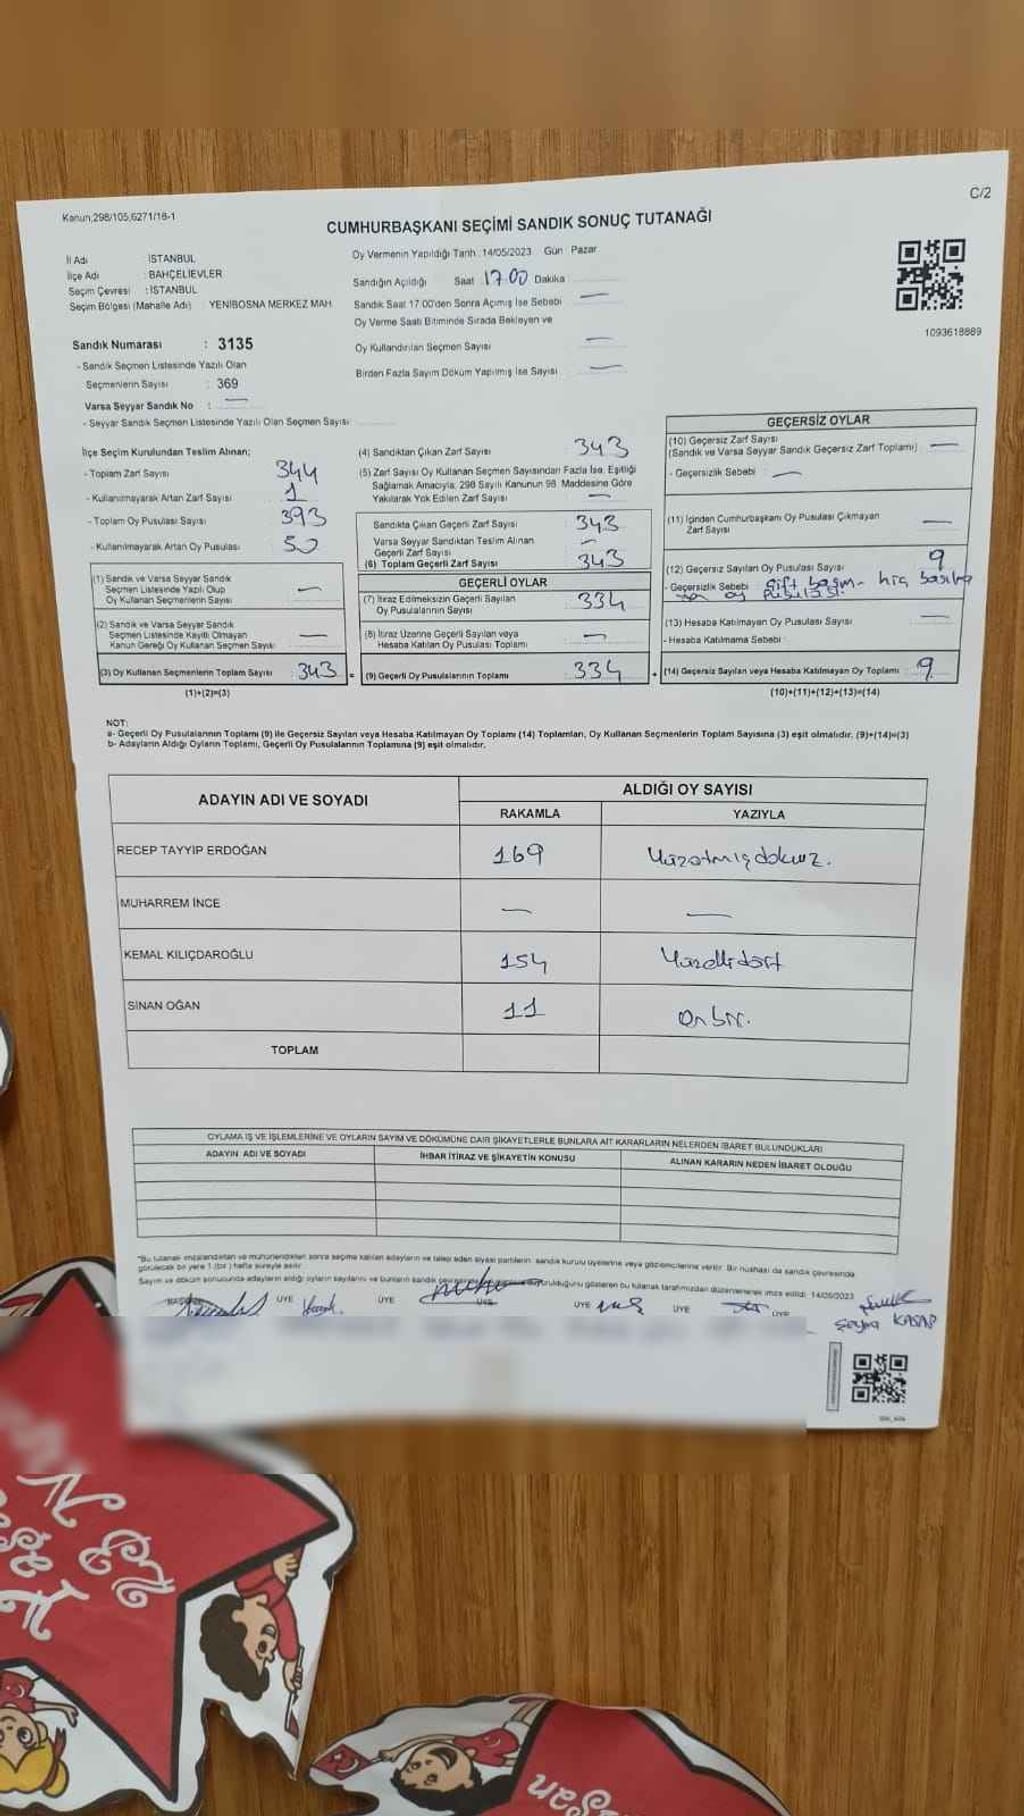 Kanun,298/105,6271/16-1
C/2
CUMHURBAŞKANI SEÇİMİ SANDIK SONUÇ TUTANAĞI
İl Adı : İSTANBUL
İlçe Adı : BAHÇELİEVLER
Seçim Çevresi : İSTANBUL
Seçim Bölgesi (Mahalle Adı) : YENİBOSNA MERKEZ MAH.
Sandık Numarası : 3135
- Sandık Seçmen Listesinde Yazılı Olan
Seçmenlerin Sayısı : 369
Varsa Seyyar Sandık No : —
- Seyyar Sandık Seçmen Listesinde Yazılı Olan Seçmen Sayısı
Oy Vermenin Yapıldığı Tarih: 14/05/2023 Gün Pazar
Sandığın Açıldığı Saat 17.00 Dakika
Sandık Saat 17.00'den Sonra Açımış İse Sebebi —
Oy Verme Saati Bitiminde Sırada Bekleyen ve
Oy Kullandırılan Seçmen Sayısı —
Birden Fazla Sayım Döküm Yapılmış İse Sayısı —
1093618889
İlçe Seçim Kurulundan Teslim Alınan;
- Toplam Zarf Sayısı 344
- Kullanılmayarak Artan Zarf Sayısı 1
- Toplam Oy Pusulası Sayısı 393
- Kullanılmayarak Artan Oy Pusulası 50
(1) Sandık ve Varsa Seyyar Sandık
Seçmen Listesinde Yazılı Olup
Oy Kullanan Seçmenlerin Sayısı —
(2) Sandık ve Varsa Seyyar Sandık
Seçmen Listesinde Kayıtlı Olmayan
Kanun Gereği Oy Kullanan Seçmen Sayısı —
(3) Oy Kullanan Seçmenlerin Toplam Sayısı 343 =
(1)+(2)=(3)
(4) Sandıktan Çıkan Zarf Sayısı 343
(5) Zarf Sayısı Oy Kullanan Seçmen Sayısından Fazla İse, Eşitliği
Sağlamak Amacıyla, 298 Sayılı Kanunun 98. Maddesine Göre
Yakılarak Yok Edilen Zarf Sayısı —
Sandıkta Çıkan Geçerli Zarf Sayısı 343
Varsa Seyyar Sandıktan Teslim Alınan
Geçerli Zarf Sayısı —
(6) Toplam Geçerli Zarf Sayısı 343
GEÇERLİ OYLAR
(7) İtiraz Edilmeksizin Geçerli Sayılan
Oy Pusulalarının Sayısı 334
(8) İtiraz Üzerine Geçerli Sayılan veya
Hesaba Katılan Oy Pusulası Toplamı —
(9) Geçerli Oy Pusulalarının Toplamı 334 +
GEÇERSİZ OYLAR
(10) Geçersiz Zarf Sayısı
(Sandık ve Varsa Seyyar Sandık Geçersiz Zarf Toplamı) —
- Geçersizlik Sebebi : —
(11) İçinden Cumhurbaşkanı Oy Pusulası Çıkmayan
Zarf Sayısı —
(12) Geçersiz Sayılan Oy Pusulası Sayısı 9
- Geçersizlik Sebebi Çift basım - hiç
oy pusulası.
(13) Hesaba Katılmayan Oy Pusulası Sayısı —
- Hesaba Katılmama Sebebi :
(14) Geçersiz Sayılan veya Hesaba Katılmayan Oy Toplamı 9
(10)+(11)+(12)+(13)=(14)
NOT:
a- Geçerli Oy Pusulalarının Toplamı (9) ile Geçersiz Sayılan veya Hesaba Katılmayan Oy Toplamı (14) Toplamları, Oy Kullanan Seçmenlerin Toplam Sayısına (3) eşit olmalıdır. (9)+(14)=(3)
b- Adayların Aldığı Oyların Toplamı, Geçerli Oy Pusulalarının Toplamına (9) eşit olmalıdır.
ADAYIN ADI VE SOYADI
ALDIĞI OY SAYISI
RAKAMLA YAZIYLA
RECEP TAYYİP ERDOĞAN 169 Yüzatmışdokuz.
MUHARREM İNCE — —
KEMAL KILIÇDAROĞLU 154 Yüzellidört
SİNAN OĞAN 11 Onbir.
TOPLAM
OYLAMA İŞ VE İŞLEMLERİNE VE OYLARIN SAYIM VE DÖKÜMÜNE DAİR ŞİKAYETLERLE BUNLARA AİT KARARLARIN NELERDEN İBARET BULUNDUKLARI
ADAYIN ADI VE SOYADI İHBAR İTİRAZ VE ŞİKAYETİN KONUSU ALINAN KARARIN NEDEN İBARET OLDUĞU
*Bu tutanak imzalandıktan ve mühürlendikten sonra seçime katılan adayların ve talep eden siyasi partilerin sandık kurulu üyelerine veya gözlemcilerine verilir. Bir nüshası da sandık çevresinde
görülecek bir yere 1 (bir) hafta süreyle asılır.
Sayım ve döküm sonucunda adayların aldığı oyların sayılarını ve bunların sandık gösteren bu tutanak tarafımızdan düzenlenerek imza edildi. 14/05/2023
BAŞKAN ÜYE ÜYE ÜYE ÜYE ÜYE ÜYE
Şeyma KASAP